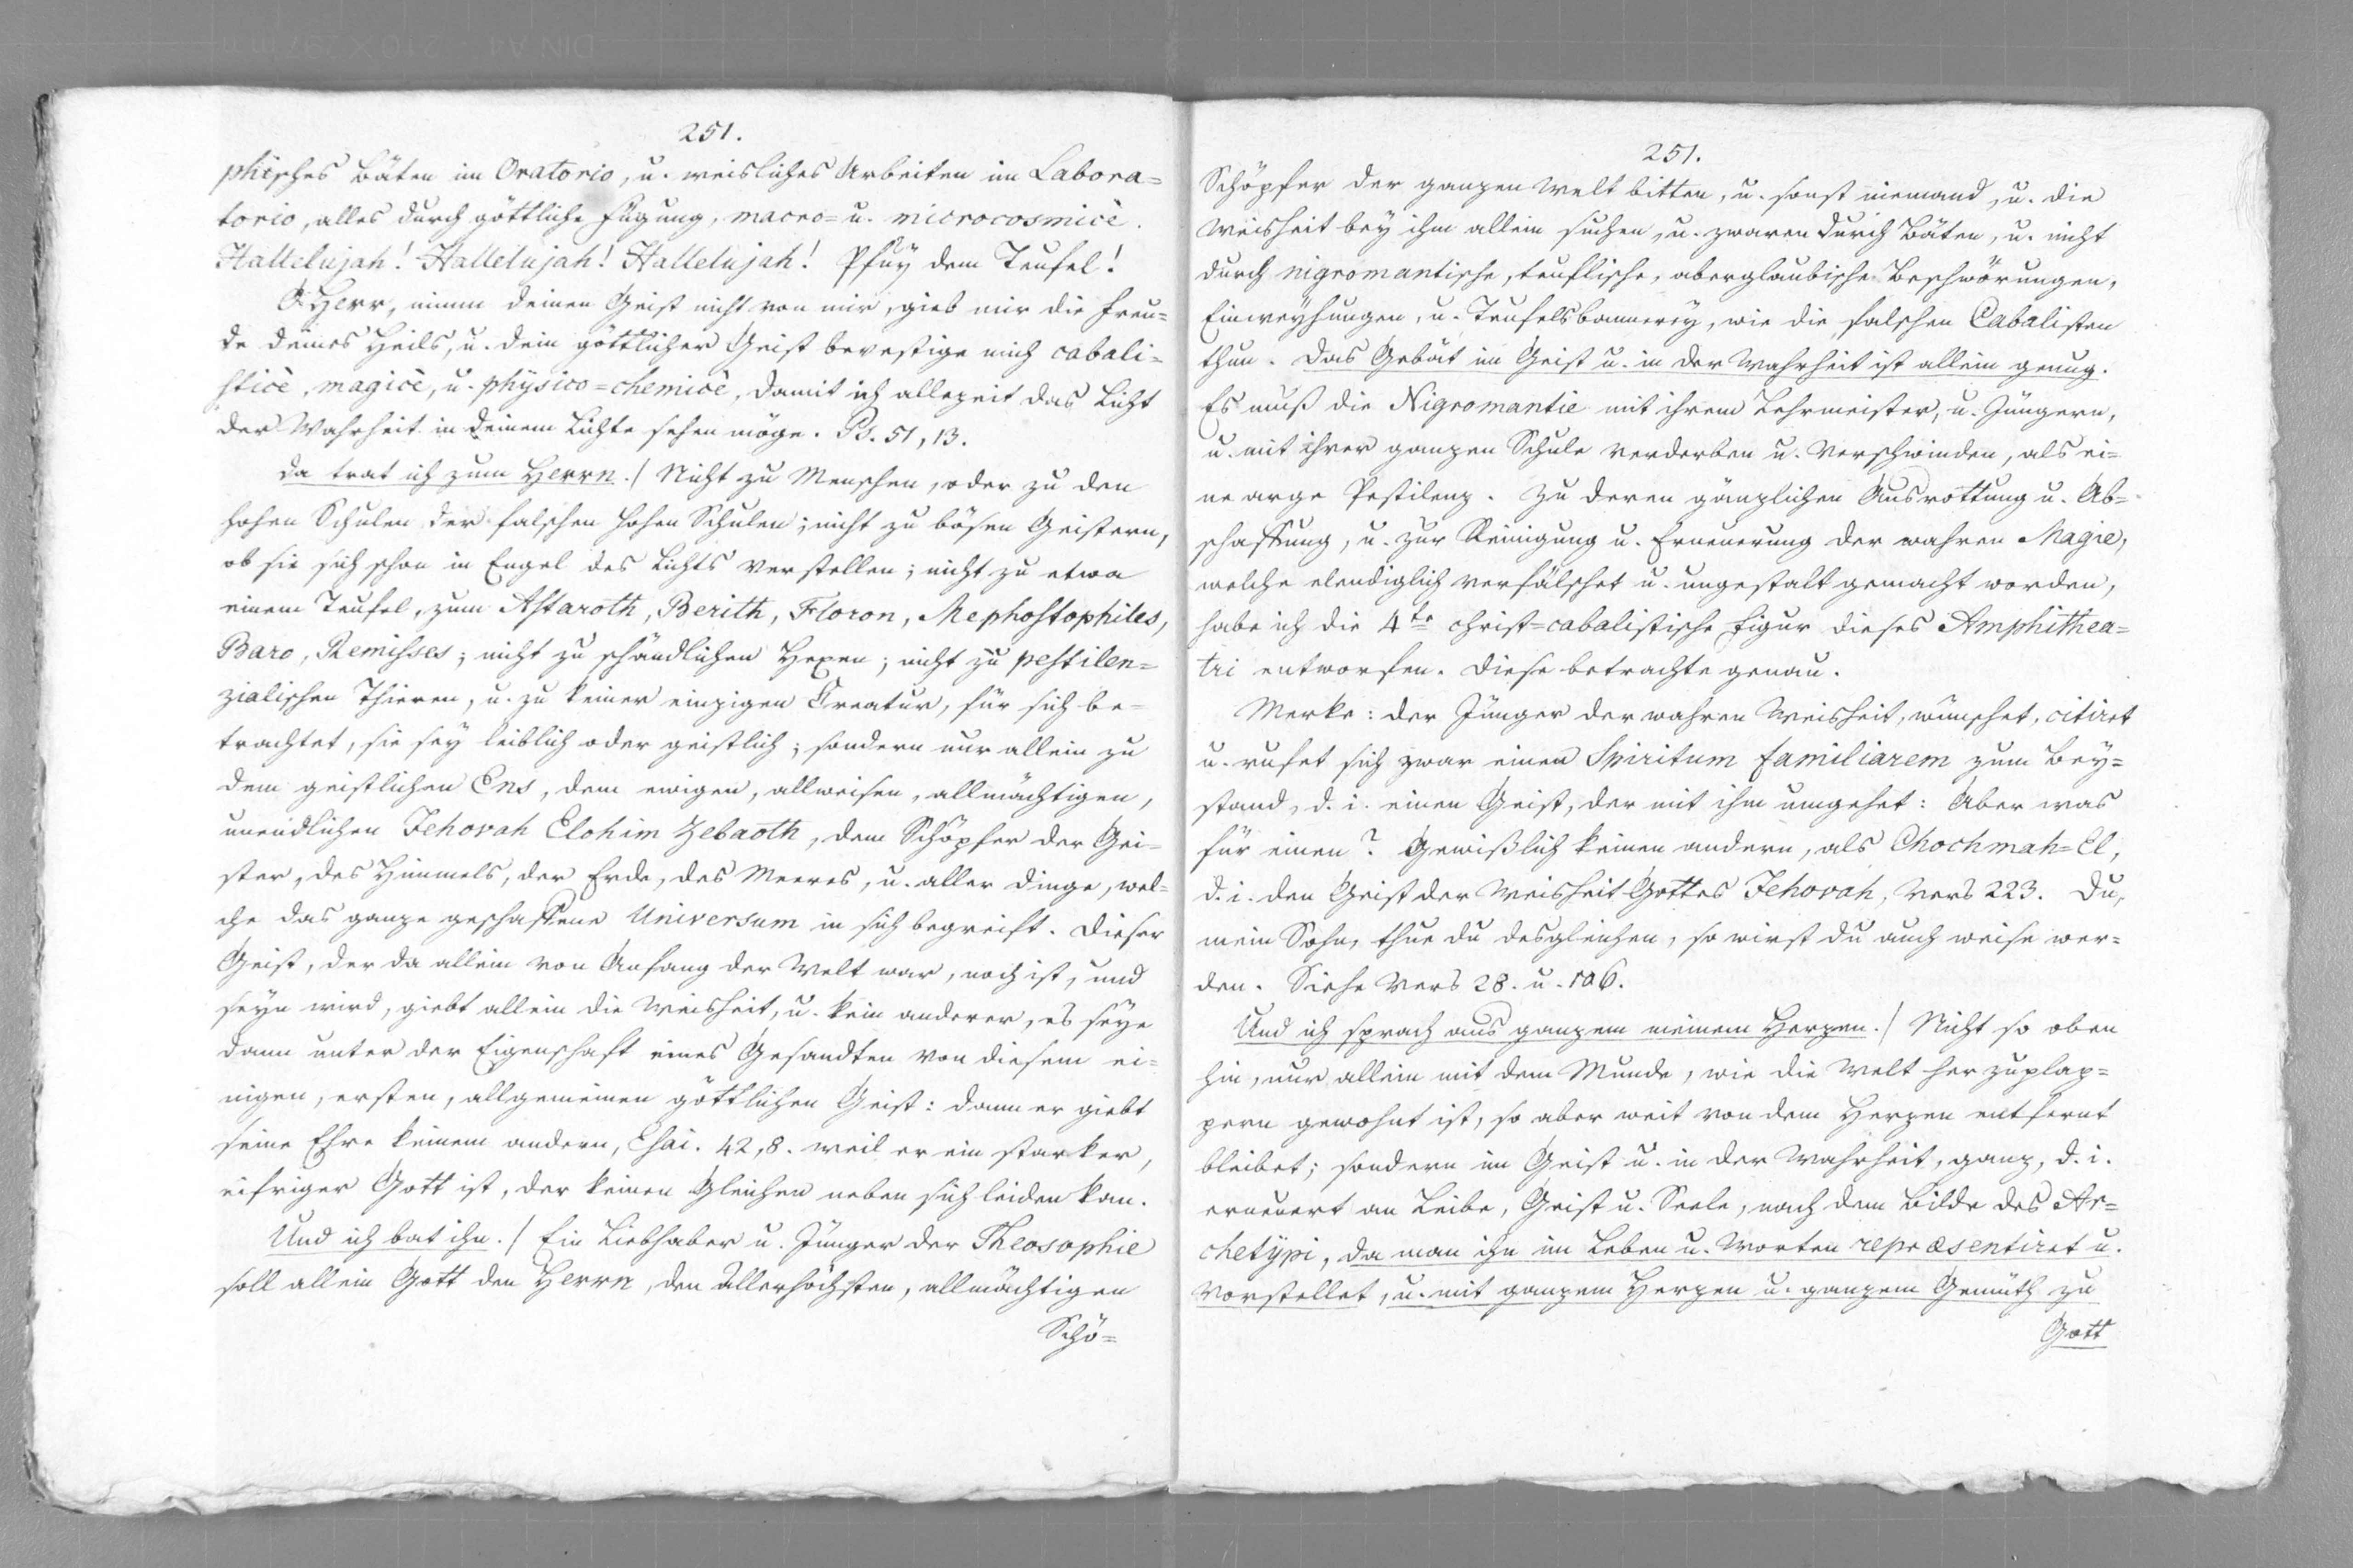 251.
phisches Bäten im Oratorio, u. weisliches Arbeiten im Labora=
torio, alles durch göttliche Fügung, macro= u. microcosmicè.
Hallelujah! Hallelujah! Hallelujah! Pfuÿ dem Teufel!
O Herr, nimm deinen Geist nicht von mir, gieb mir die Freu=
de deines Heils, u. dein göttlicher Geist bevestige mich cabali=
sticè, magicè, u. physico=chemicè, damit ich allezeit das Licht
der Wahrheit in deinem Lichte sehen möge. Ps. 51, 13.
Da trat ich zum Herrn./ Nicht zu Menschen, oder zu den
hohen Schulen der falschen hohen Schulen; nicht zu bösen Geistern,
ob sie sich schon in Engel des Lichts verstellen; nicht zu etwa
einem Teufel, zum Astaroth, Berith, Floron, Mephostophiles,
Baro, Remisses; nicht zu schändlichen Hexen; nicht zu pestilen=
zialischen Thieren, u. zu keiner einzigen Creatur, für sich be=
trachtet, sie seÿ leiblich oder geistlich; sondern nur allein zu
dem geistlichen Ens, dem ewigen, allweisen, allmächtigen,
unendlichen Jehovah Elohim Zebaoth, dem Schöpfer der Gei=
ster, des Himmels, der Erde, des Meeres, u. aller Dinge, wel=
che das ganze geschaffene Universum in sich begreift. Dieser
Geist, der da allein von Anfang der Welt war, noch ist, und
seÿn wird, giebt allein die Weisheit, u. kein anderer, es seÿe
dann unter der Eigenschaft eines Gesandten von diesem ei=
nigen, ersten, allgemeinen göttlichen Geist: dann er giebt
seine Ehre keinem andern, Esai. 42, 8. weil er ein starker,
eifriger Gott ist, der keinen Gleichen neben sich leiden kan.
Und ich bat ihn./ Ein Liebhaber u. Jünger der Theosophie
soll allein Gott den Herrn, den Allerhöchsten, allmächtigen
Schö=
251.
Schöpfer der ganzen Welt bitten, u. sonst niemand, u. die
Weisheit beÿ ihm allein suchen, u. zwaren durch Bäten, u. nicht
durch nigromantische, teuflische, aberglaubische Beschwörungen,
Einweÿhungen, u. Teufelsbannereÿ, wie die falschen Cabalisten
thun. Das Gebät im Geist u. in der Wahrheit ist allein genug.
Es muß die Nigromantie mit ihrem Lehrmeister, u. Jüngern,
u. mit ihrer ganzen Schule verderben u. verschwinden, als ei=
ne arge Pestilenz. Zu deren gänzlichen Ausrottung u. Ab=
schaffung, u. zur Reinigung u. Erneuerung der wahren Magie,
welche elendiglich verfälschet u. ungestalt gemacht worden,
habe ich die 4te christ=cabalistische Figur dieses Amphithea=
tri entworfen. Diese betrachte genau.
Merke: der Jünger der wahren Weisheit, wünschet, citiret
u. rufet sich zwar einen Spiritum familiarem zum Beÿ=
stand, d. i. einen Geist, der mit ihm umgehet: Aber was
für einen? Gewißlich keinen andern, als Chochmah=El,
d. i. den Geist der Weisheit Gottes Jehovah, Vers 223. Du,
mein Sohn, thue du desgleichen, so wirst du auch weise wer=
den. Siehe Vers 28. u. 106.
Und ich sprach aus ganzem meinem Herzen./ Nicht so oben
hin, nur allein mit dem Munde, wie die Welt her zuplap=
pern gewohnt ist, so aber weit von dem Herzen entfernt
bleibet; sondern im Geist u. in der Wahrheit, ganz, d. i.
erneuert an Leibe, Geist u. Seele, nach dem Bilde des Ar=
chetÿpi, da man ihn im Leben u. Worten repræsentiret u.
vorstellet, u. mit ganzem Herzen u. ganzem Gemüth zu
Gott